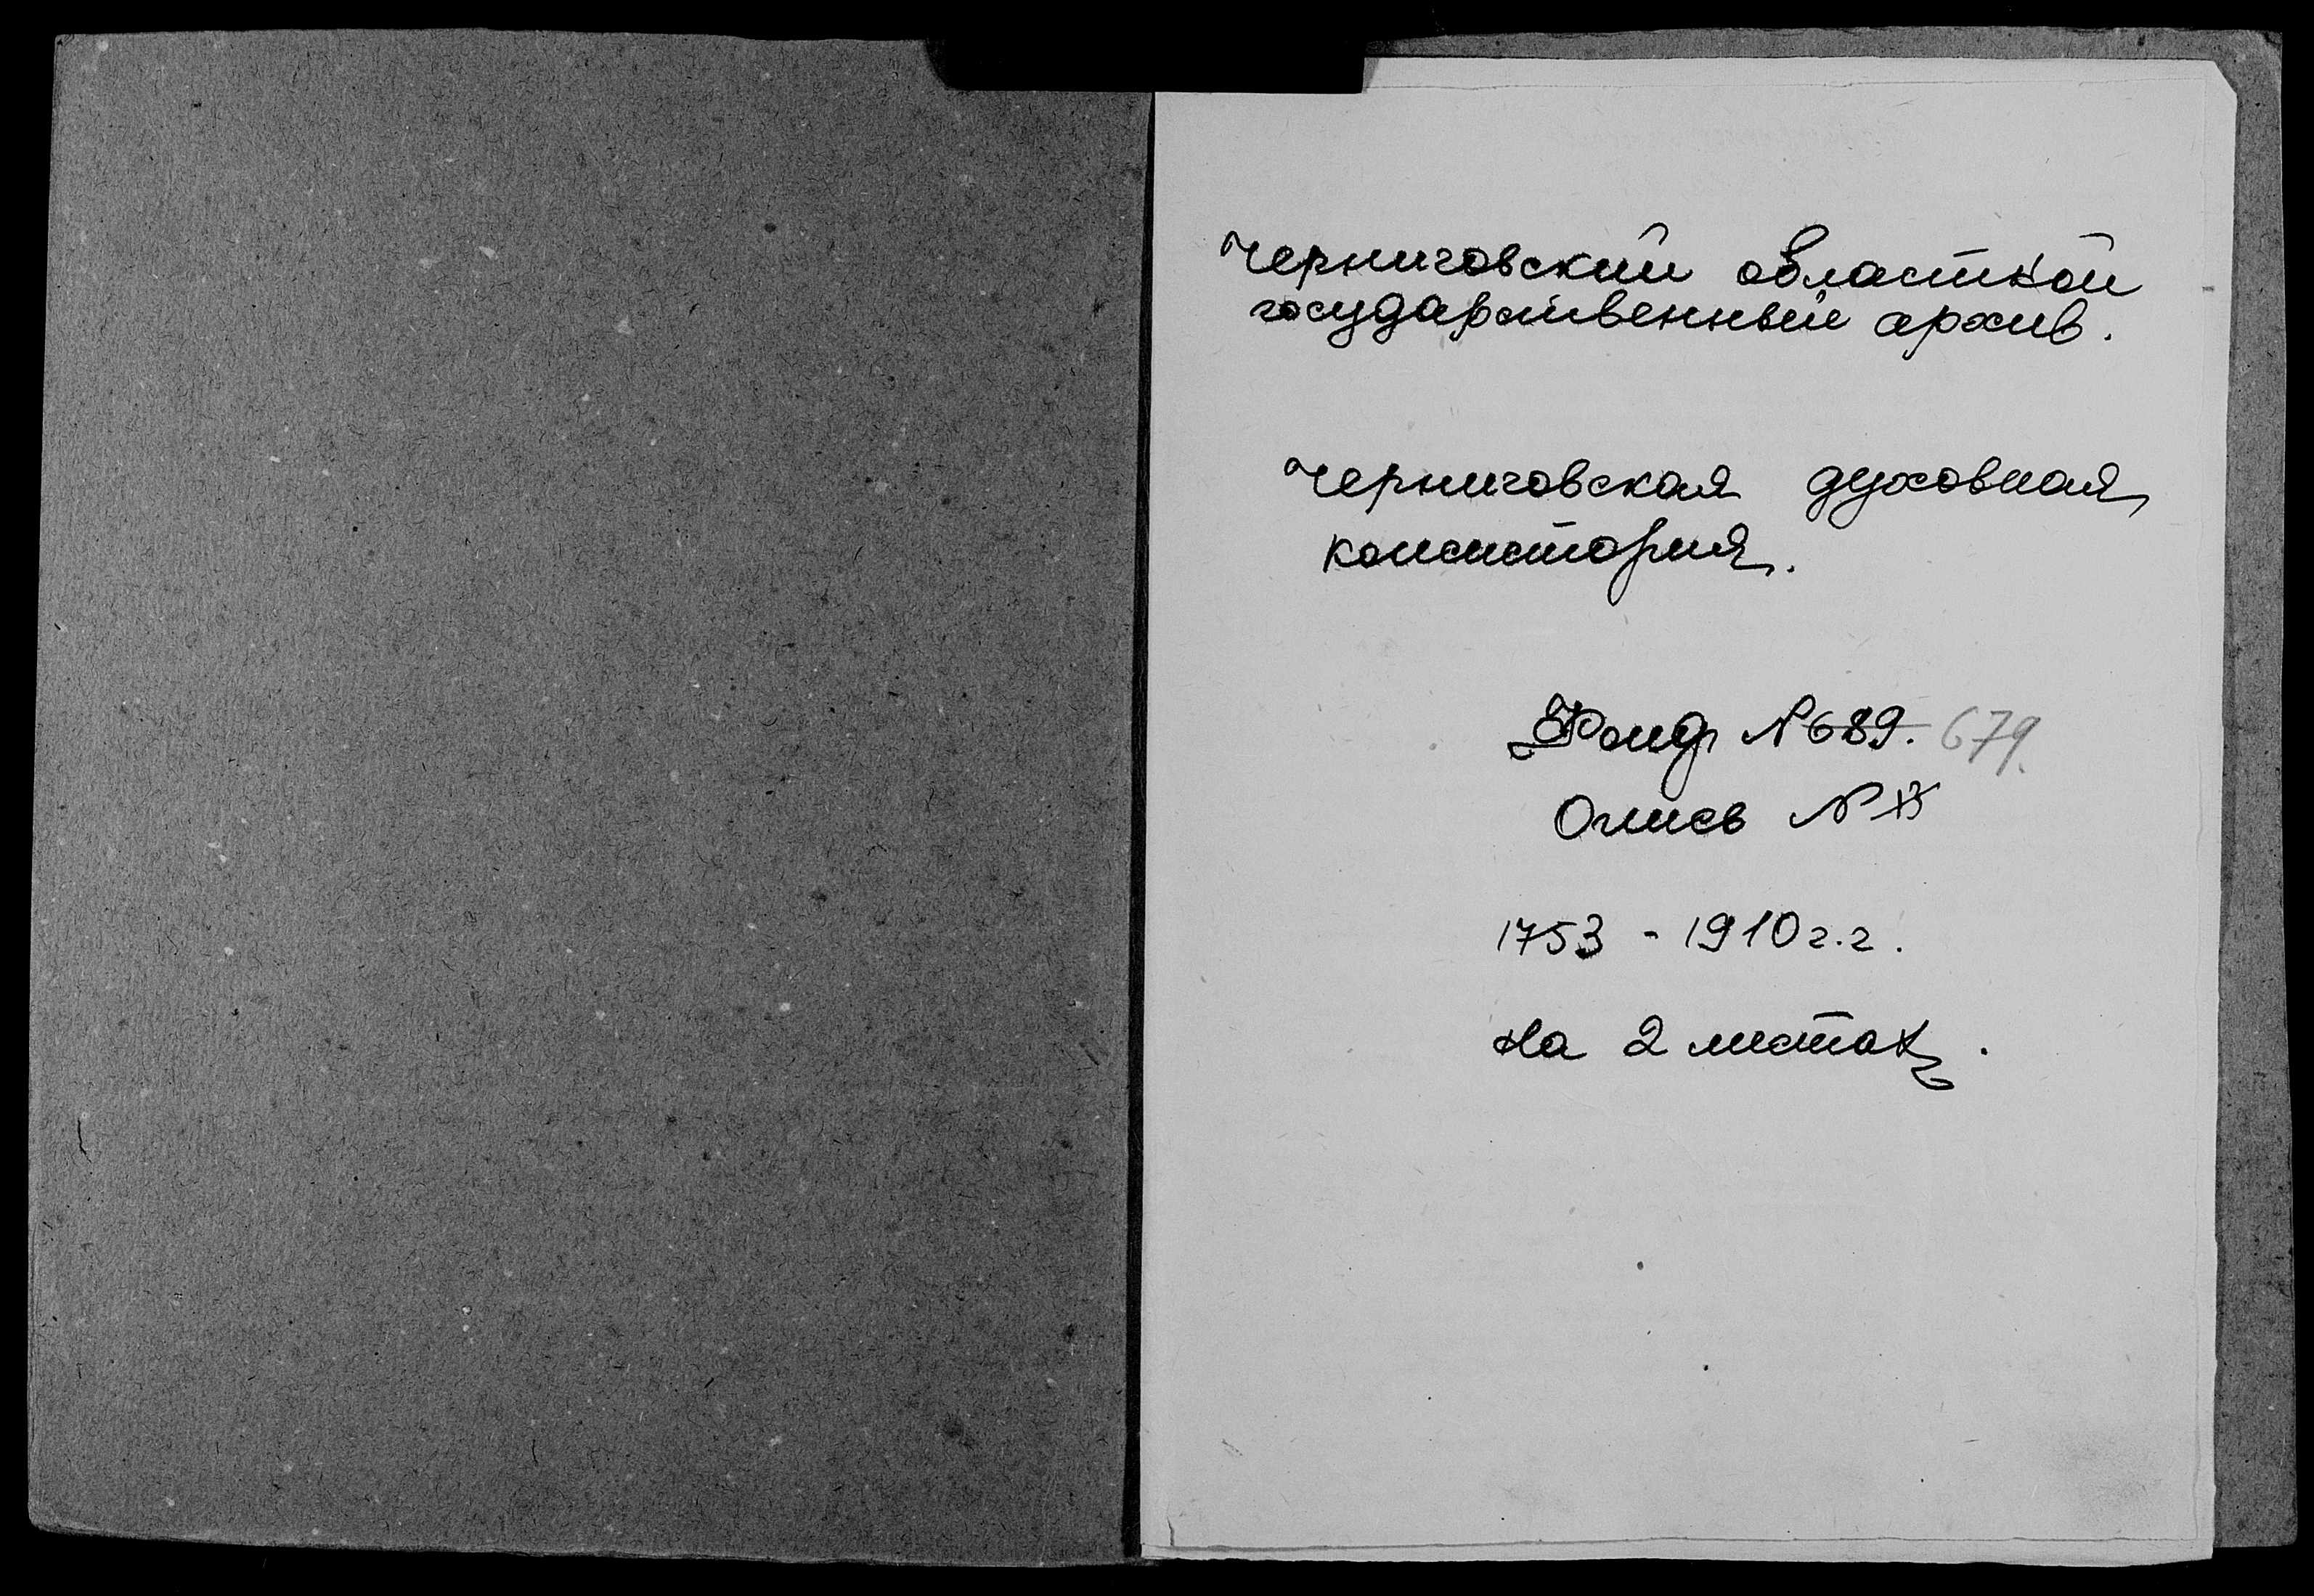 Черниговский областной
государственный архив.
Черниговская духовная
консистория.
Фонд № 689. 679.
Опись №
1753 - 1910 г.г.
На 2 листах.